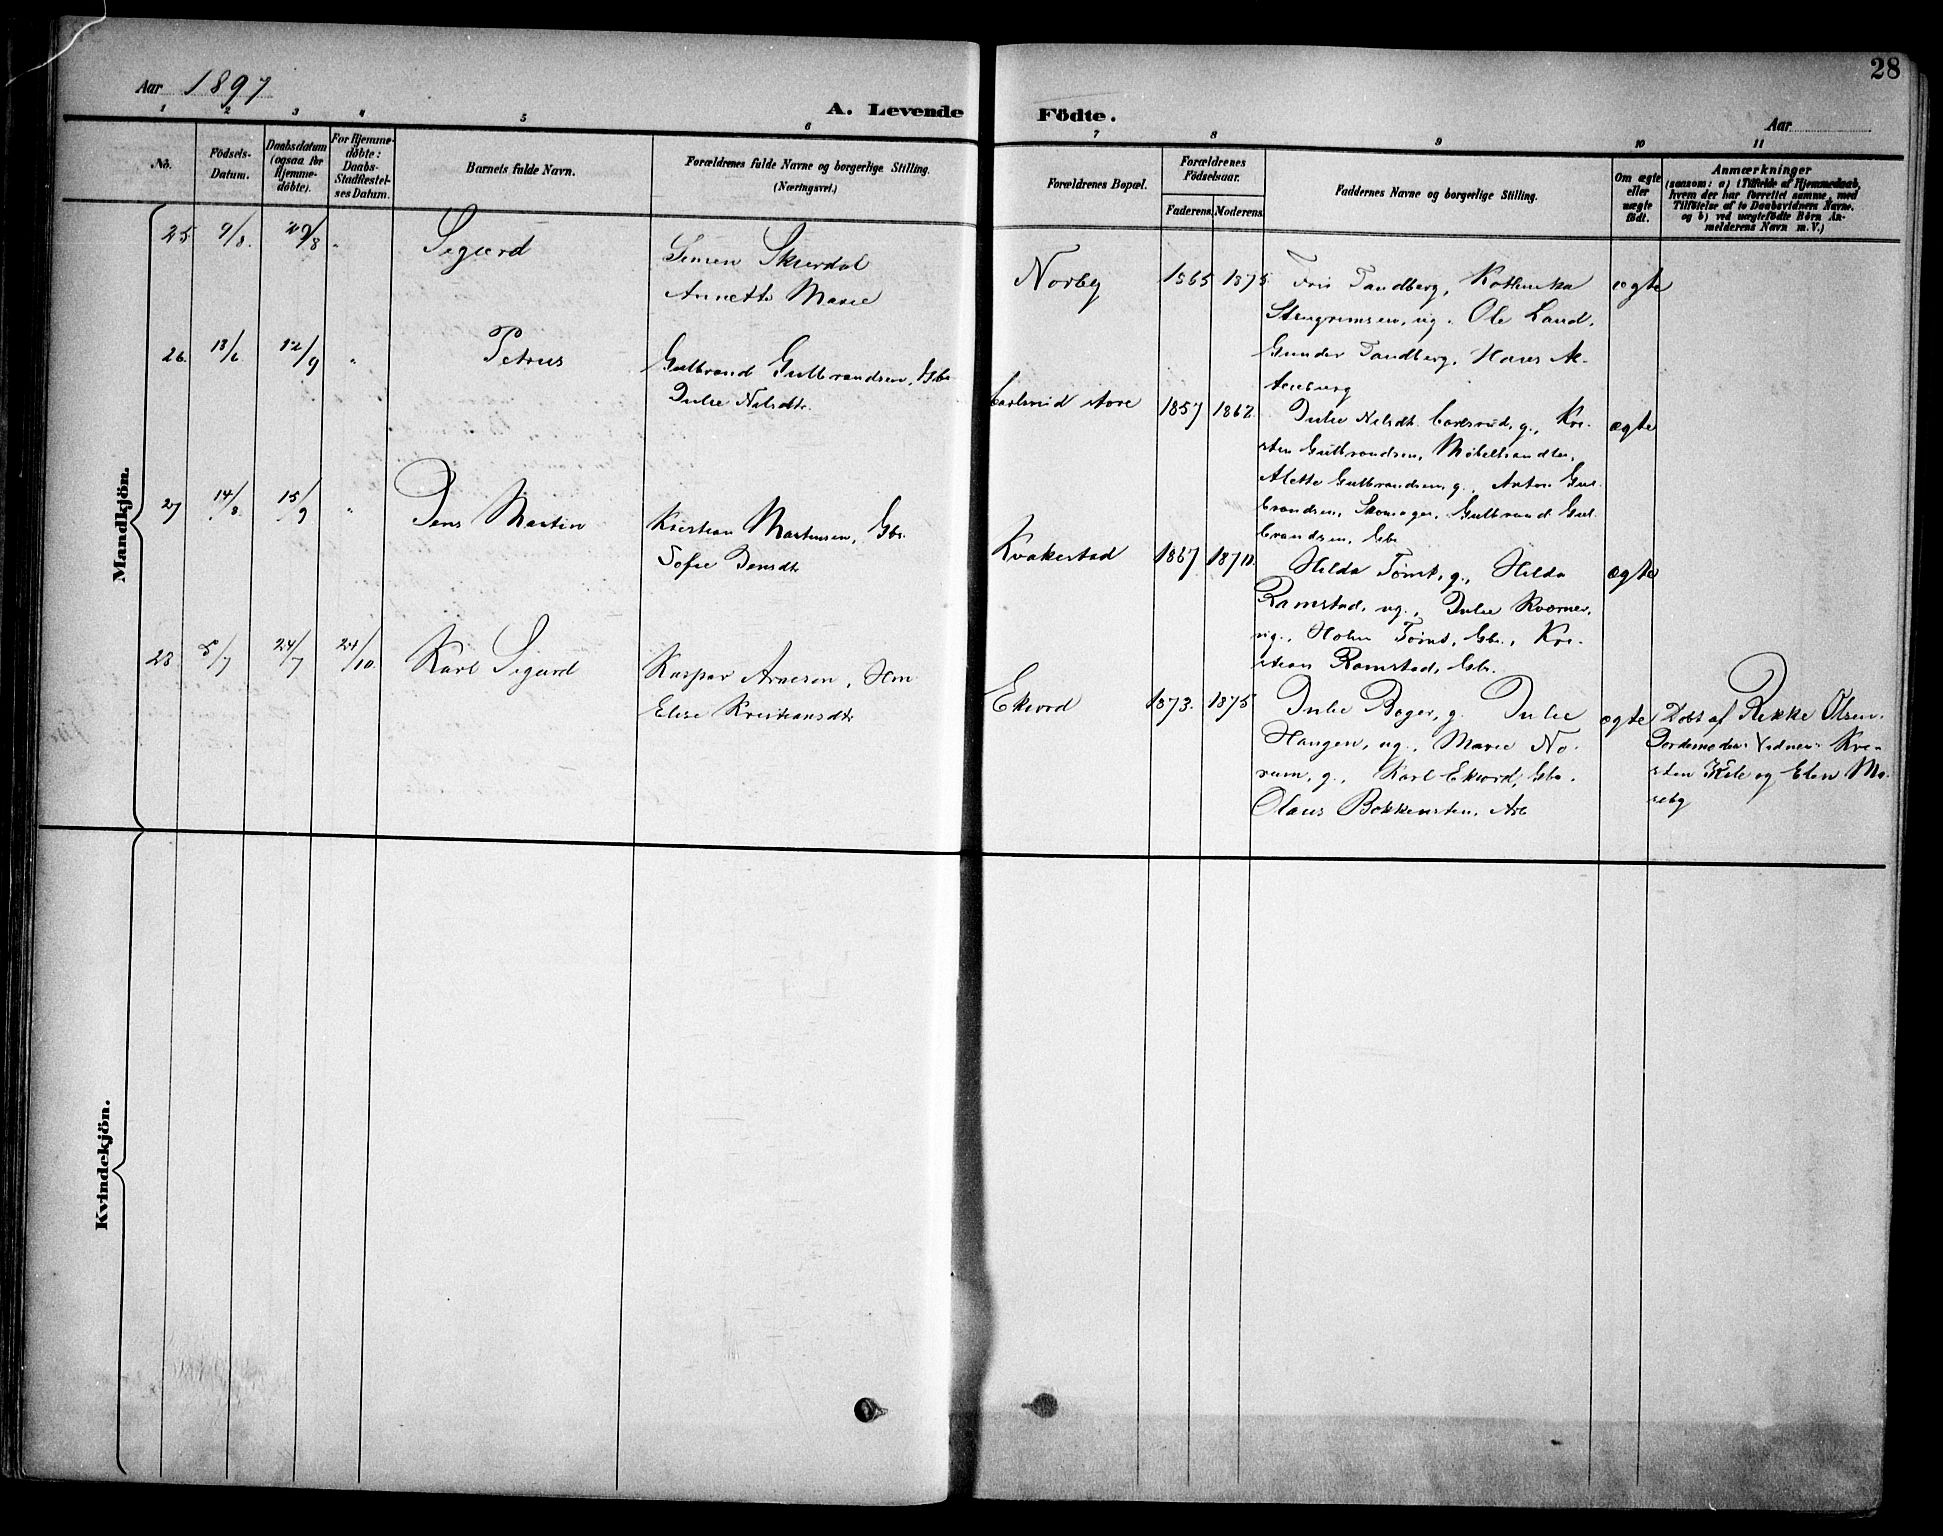 28
Aar 1897
A. Levende Födte.
Aar
1 2 3 4 5 6 7 8 9 10 11
No.
Födsels-
Datum.
Daabsdatum
(ogsaa for
Hjemme-
döbte).
For Hjemme-
döbte:
Daabs-
Stadfestel-
ses Datum.
Barnets fulde Navn.
Forældrenes fulde Navne og borgerlige Stilling.
(Næringsvei.)
Forældrenes Bopæl.
Forældrenes
Födselsaar.
Faderens. Moderens.
Faddernes Navne og borgerlige Stilling.
Om ægte
eller
uægte
födt.
Anmærkninger
(saasom: a) i Tilfælde af Hjemmedaab,
hvem der har forrettet samme, med
Tilföielse af to Daabsvidners Navne.
og b) ved uægtefödte Börn An-
melderens Navn m. V.)
Mandkjön.
25. 9/8. 29/8 " Sigurd
Simen Skurdal
Annette Marie
Norby 1865 1875
Tandberg, Kathinka
Stengrimsen, ug. Ole Land,
Gunder Tandberg, Hans
ægte
26. 13/6 12/9 " Petrus
Gulbrand Gulbrandsen, Gbr
Julie Nilsdtr.
Carlsrud store 1857 1862.
Julie Nilsdt. Carlsrud, g., Kri-
sten Gulbrandsen, Möbelhandler,
Alette Gulbrandsen, g., Anton Gul-
brandsen, Skomager, Gulbrand Gul-
brandsen, Gbr
ægte
27 14/8 15/9 " Jens Martin
Kristian Martinsen, Gbr.
Sofie Jensdtr
Kvakestad 1867 1870.
Hilda Tömt, g., Hilda
Ramstad, ug., Julie Kværner,
ug., Holm Tömt, Gbr., Kri-
stian Ramstad, Gbr.
ægte
28. 5/7 24/7 24/10. Karl Sigurd
Kaspar Arnesen, Hm
Elise Kristiansdtr
Ekvord 1873. 1875
Julie Boger, g. Julie
Haugen, ug., Marie No-
rum, g., Karl Ekvord, Gbr.
Olaus Bekkensten, Arb
ægte
Döbt af Rikke Olsen,
Jordemoder. Vidner: Kri-
sten Kile og Elen Ma-
seby
Kvindekjön.